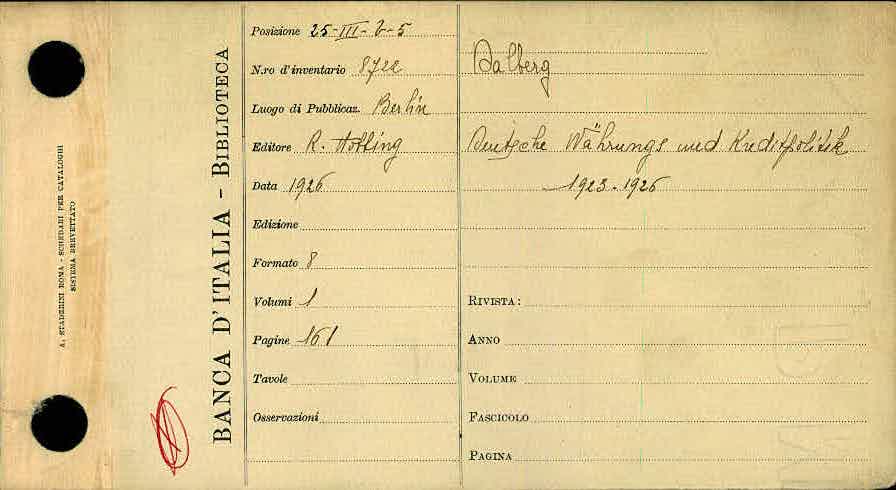 A. STADERINI ROMA - SCHEDARI PER CATALOGHI
SISTEMA BREVETTATO
BANCA D'ITALIA - BIBLIOTECA
Posizione 25-III-2-5
N.ro d'inventario 8722
Luogo di Pubblicaz. Berlin
Editore R. Hobbing
Data 1926
Edizione
Formato 8
Volumi 1
Pagine 161
Tavole
Osservazioni
Dalberg
Deutsche Währungs und Kreditpolitik
1923-1926
RIVISTA:
ANNO
VOLUME
FASCICOLO
PAGINA